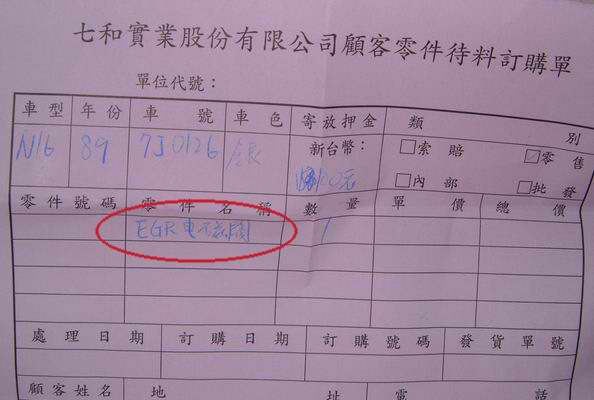 七和實業股份有限公司顧客零件待料訂購單
單位代號：
車型 年份 車號 車色 寄放押金 類別
N16 89 7J0126 銀 新台幣： □索賠 ☑零售
元 □內部 □批發
零件號碼 零件名稱 數量 單價 總價
EGR電磁閥 1
處理日期 訂購日期 訂購號碼 發貨單號
顧客姓名 地址 電話